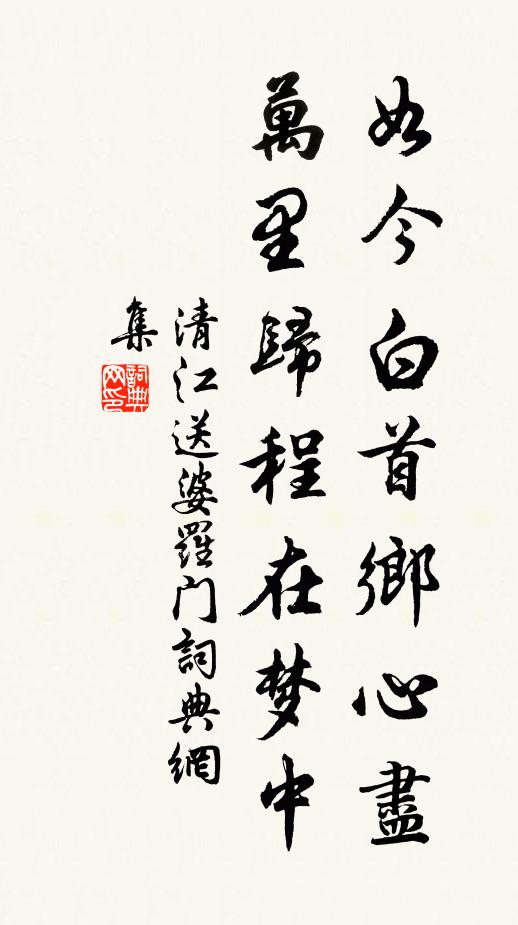 如今白首鄉心盡
萬里歸程在梦中
清江送婆羅门詞典網
集
詞典
网印